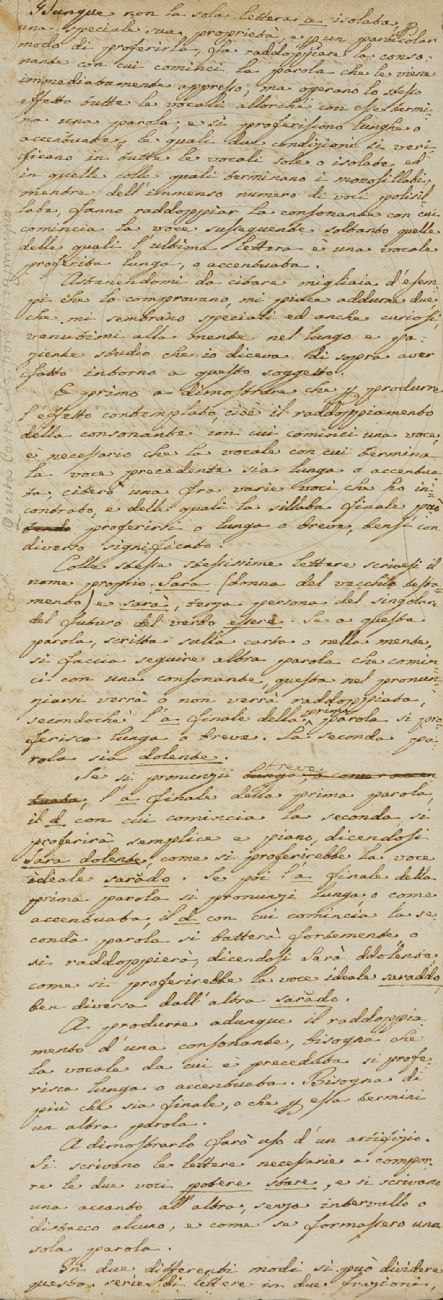 Dunque non la sola lettera a isolata, p
una speciale sua proprietà, e p un particolar
modo di proferirla, fa raddoppiare la conso-
nante con cui cominci la parola che le viene
immediatamente appresso; ma operano lo stesso
effetto tutte le vocali allorchè con esse termi-
na una parola, e si proferiscono lunghe o
accentuate; le quali due condizioni si veri-
ficano in tutte le vocali sole o isolate, ed
in quelle colle quali terminano i monosillabi,
mentre dell'immenso numero di voci polisil-
labe, fanno raddoppiar la consonante con cui
comincia la voce susseguente soltanto quelle
delle quali l'ultima lettera è una vocale
proferita lunga, o accentuata.
Astenendomi da citare migliaia d'esem-
pi che lo comprovano, mi piace addurne due
che mi sembrano speciali ed anche curiosi
venutimi alla mente nel lungo e pa-
ziente studio che io diceva di sopra aver
fatto intorno a questo soggetto.
E primo a dimostrare che p produrre
l'effetto contemplato, cioè il raddoppiamento
della consonante con cui cominci una voce
è necessario che la vocale con cui termina
la voce precedente sia lunga o accentua-
ta, citerò una fra varie voci che ho in-
contrato, e delle quali la sillaba finale può
proferirsi o lunga o breve, bensì con
diverso significato.
Colle stesse stessissime lettere scrivesi il
nome proprio Sara (donna del vecchio testa-
mento) e sarà, terza persona del singolar
del futuro del verbo essere. Se a questa
parola, scritta sulla carta o nella mente,
si faccia seguire altra parola che comin-
ci con una consonante, questa nel pronun-
ziarsi verrà o non verrà raddoppiata,
secondochè l'a finale della prima parola si pro-
ferisca lunga o breve. La seconda pa-
rola sia dolente.
Se si pronunzii breve lunga, o come accen
tuata, l'a finale della prima parola,
il d con cui comincia la seconda si
proferirà semplice e piano, dicendosi
sara dolente, come si proferirebbe la voce
ideale sarădo. Se poi l'a finale della
prima parola si pronunzj lunga o come
accentuata, il d con cui comincia la se-
conda parola si batterà fortemente o
si raddoppierà, dicendosi Sarà ddolente
come si proferirebbe la voce ideale saraddo,
ben diversa dall'altra sarădo.
A produrre adunque il raddoppia-
mento d'una consonante, bisogna che
la vocale da cui è preceduta si profe-
risca lunga o accentuata. Bisogna di
più che sia finale, o che p essa termini
un'altra parola.
A dimostrarlo farò uso d'un artifizio.
Si scrivano le lettere necessarie a compor-
re le due voci potere stare, e si scrivano
una accanto all'altra, senza intervallo o
distacco alcuno, e come se formassero una
sola parola.
In due differenti modi si può dividere
questa serie di lettere in due frazioni,